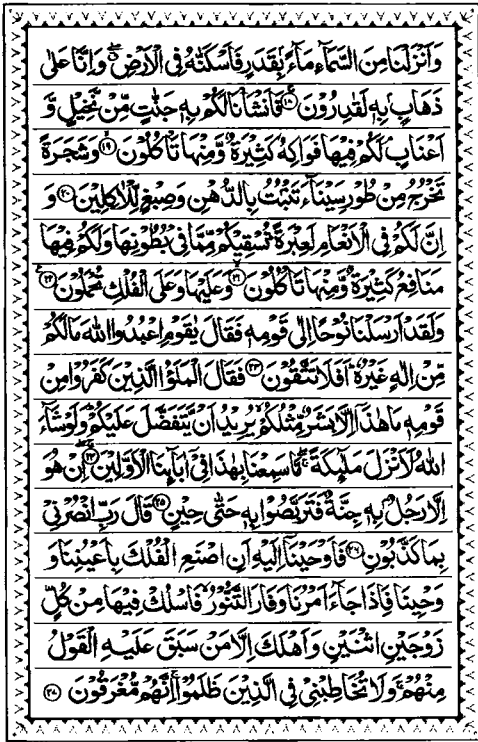 وَاَنْزَلْنَا مِنَ السَّمَآءِ مَآءًۢ بِقَدَرٍ فَاَسْكَنّٰهُ فِی الْاَرْضِ ۖۗ وَاِنَّا عَلٰی
ذَهَابٍۭ بِهٖ لَقٰدِرُوْنَ ۚ﴿۱۸﴾ فَاَنْشَاْنَا لَكُمْ بِهٖ جَنّٰتٍ مِّنْ نَّخِیْلٍ وَّ
اَعْنَابٍ ۘ لَكُمْ فِیْهَا فَوَاكِهُ كَثِیْرَةٌ وَّمِنْهَا تَاْكُلُوْنَ ۙ﴿۱۹﴾ وَشَجَرَةً
تَخْرُجُ مِنْ طُوْرِ سَیْنَآءَ تَنْۢبُتُ بِالدُّهْنِ وَصِبْغٍ لِّلْاٰكِلِیْنَ ﴿۲۰﴾ وَ
اِنَّ لَكُمْ فِی الْاَنْعَامِ لَعِبْرَةً ؕ نُسْقِیْكُمْ مِّمَّا فِیْ بُطُوْنِهَا وَلَكُمْ فِیْهَا
مَنَافِعُ كَثِیْرَةٌ وَّمِنْهَا تَاْكُلُوْنَ ۙ﴿۲۱﴾ وَعَلَیْهَا وَعَلَی الْفُلْكِ تُحْمَلُوْنَ ۠﴿۲۲﴾
وَلَقَدْ اَرْسَلْنَا نُوْحًا اِلٰی قَوْمِهٖ فَقَالَ یٰقَوْمِ اعْبُدُوا اللّٰهَ مَا لَكُمْ
مِّنْ اِلٰهٍ غَیْرُهٗ ؕ اَفَلَا تَتَّقُوْنَ ﴿۲۳﴾ فَقَالَ الْمَلَؤُا الَّذِیْنَ كَفَرُوْا مِنْ
قَوْمِهٖ مَا هٰذَاۤ اِلَّا بَشَرٌ مِّثْلُكُمْ ۙ یُرِیْدُ اَنْ یَّتَفَضَّلَ عَلَیْكُمْ ؕ وَلَوْ شَآءَ
اللّٰهُ لَاَنْزَلَ مَلٰٓئِكَةً ۖۚ مَّا سَمِعْنَا بِهٰذَا فِیْۤ اٰبَآئِنَا الْاَوَّلِیْنَ ۚ﴿۲۴﴾ اِنْ هُوَ
اِلَّا رَجُلٌۢ بِهٖ جِنَّةٌ فَتَرَبَّصُوْا بِهٖ حَتّٰی حِیْنٍ ﴿۲۵﴾ قَالَ رَبِّ انْصُرْنِیْ
بِمَا كَذَّبُوْنِ ﴿۲۶﴾ فَاَوْحَیْنَاۤ اِلَیْهِ اَنِ اصْنَعِ الْفُلْكَ بِاَعْیُنِنَا وَ
وَحْیِنَا فَاِذَا جَآءَ اَمْرُنَا وَفَارَ التَّنُّوْرُ ۙ فَاسْلُكْ فِیْهَا مِنْ كُلٍّ
زَوْجَیْنِ اثْنَیْنِ وَاَهْلَكَ اِلَّا مَنْ سَبَقَ عَلَیْهِ الْقَوْلُ
مِنْهُمْ ۚ وَلَا تُخَاطِبْنِیْ فِی الَّذِیْنَ ظَلَمُوْا ۚ اِنَّهُمْ مُّغْرَقُوْنَ ﴿۲۷﴾